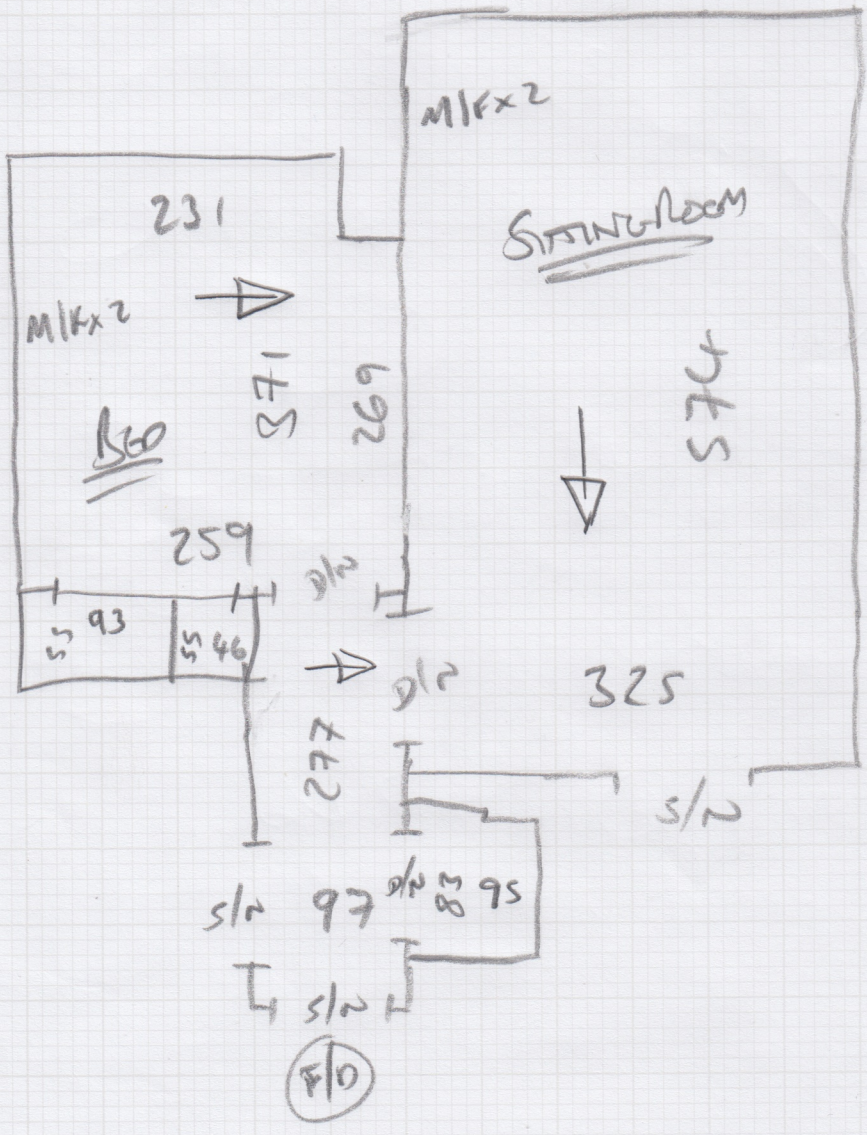 M/Fx2
231
SITTING ROOM
M/Fx2
371
269
574
BED
259
D/N
55 93
55 46
D/N
325
277
S/N
S/N 97 D/N 83 95
S/N
F/D